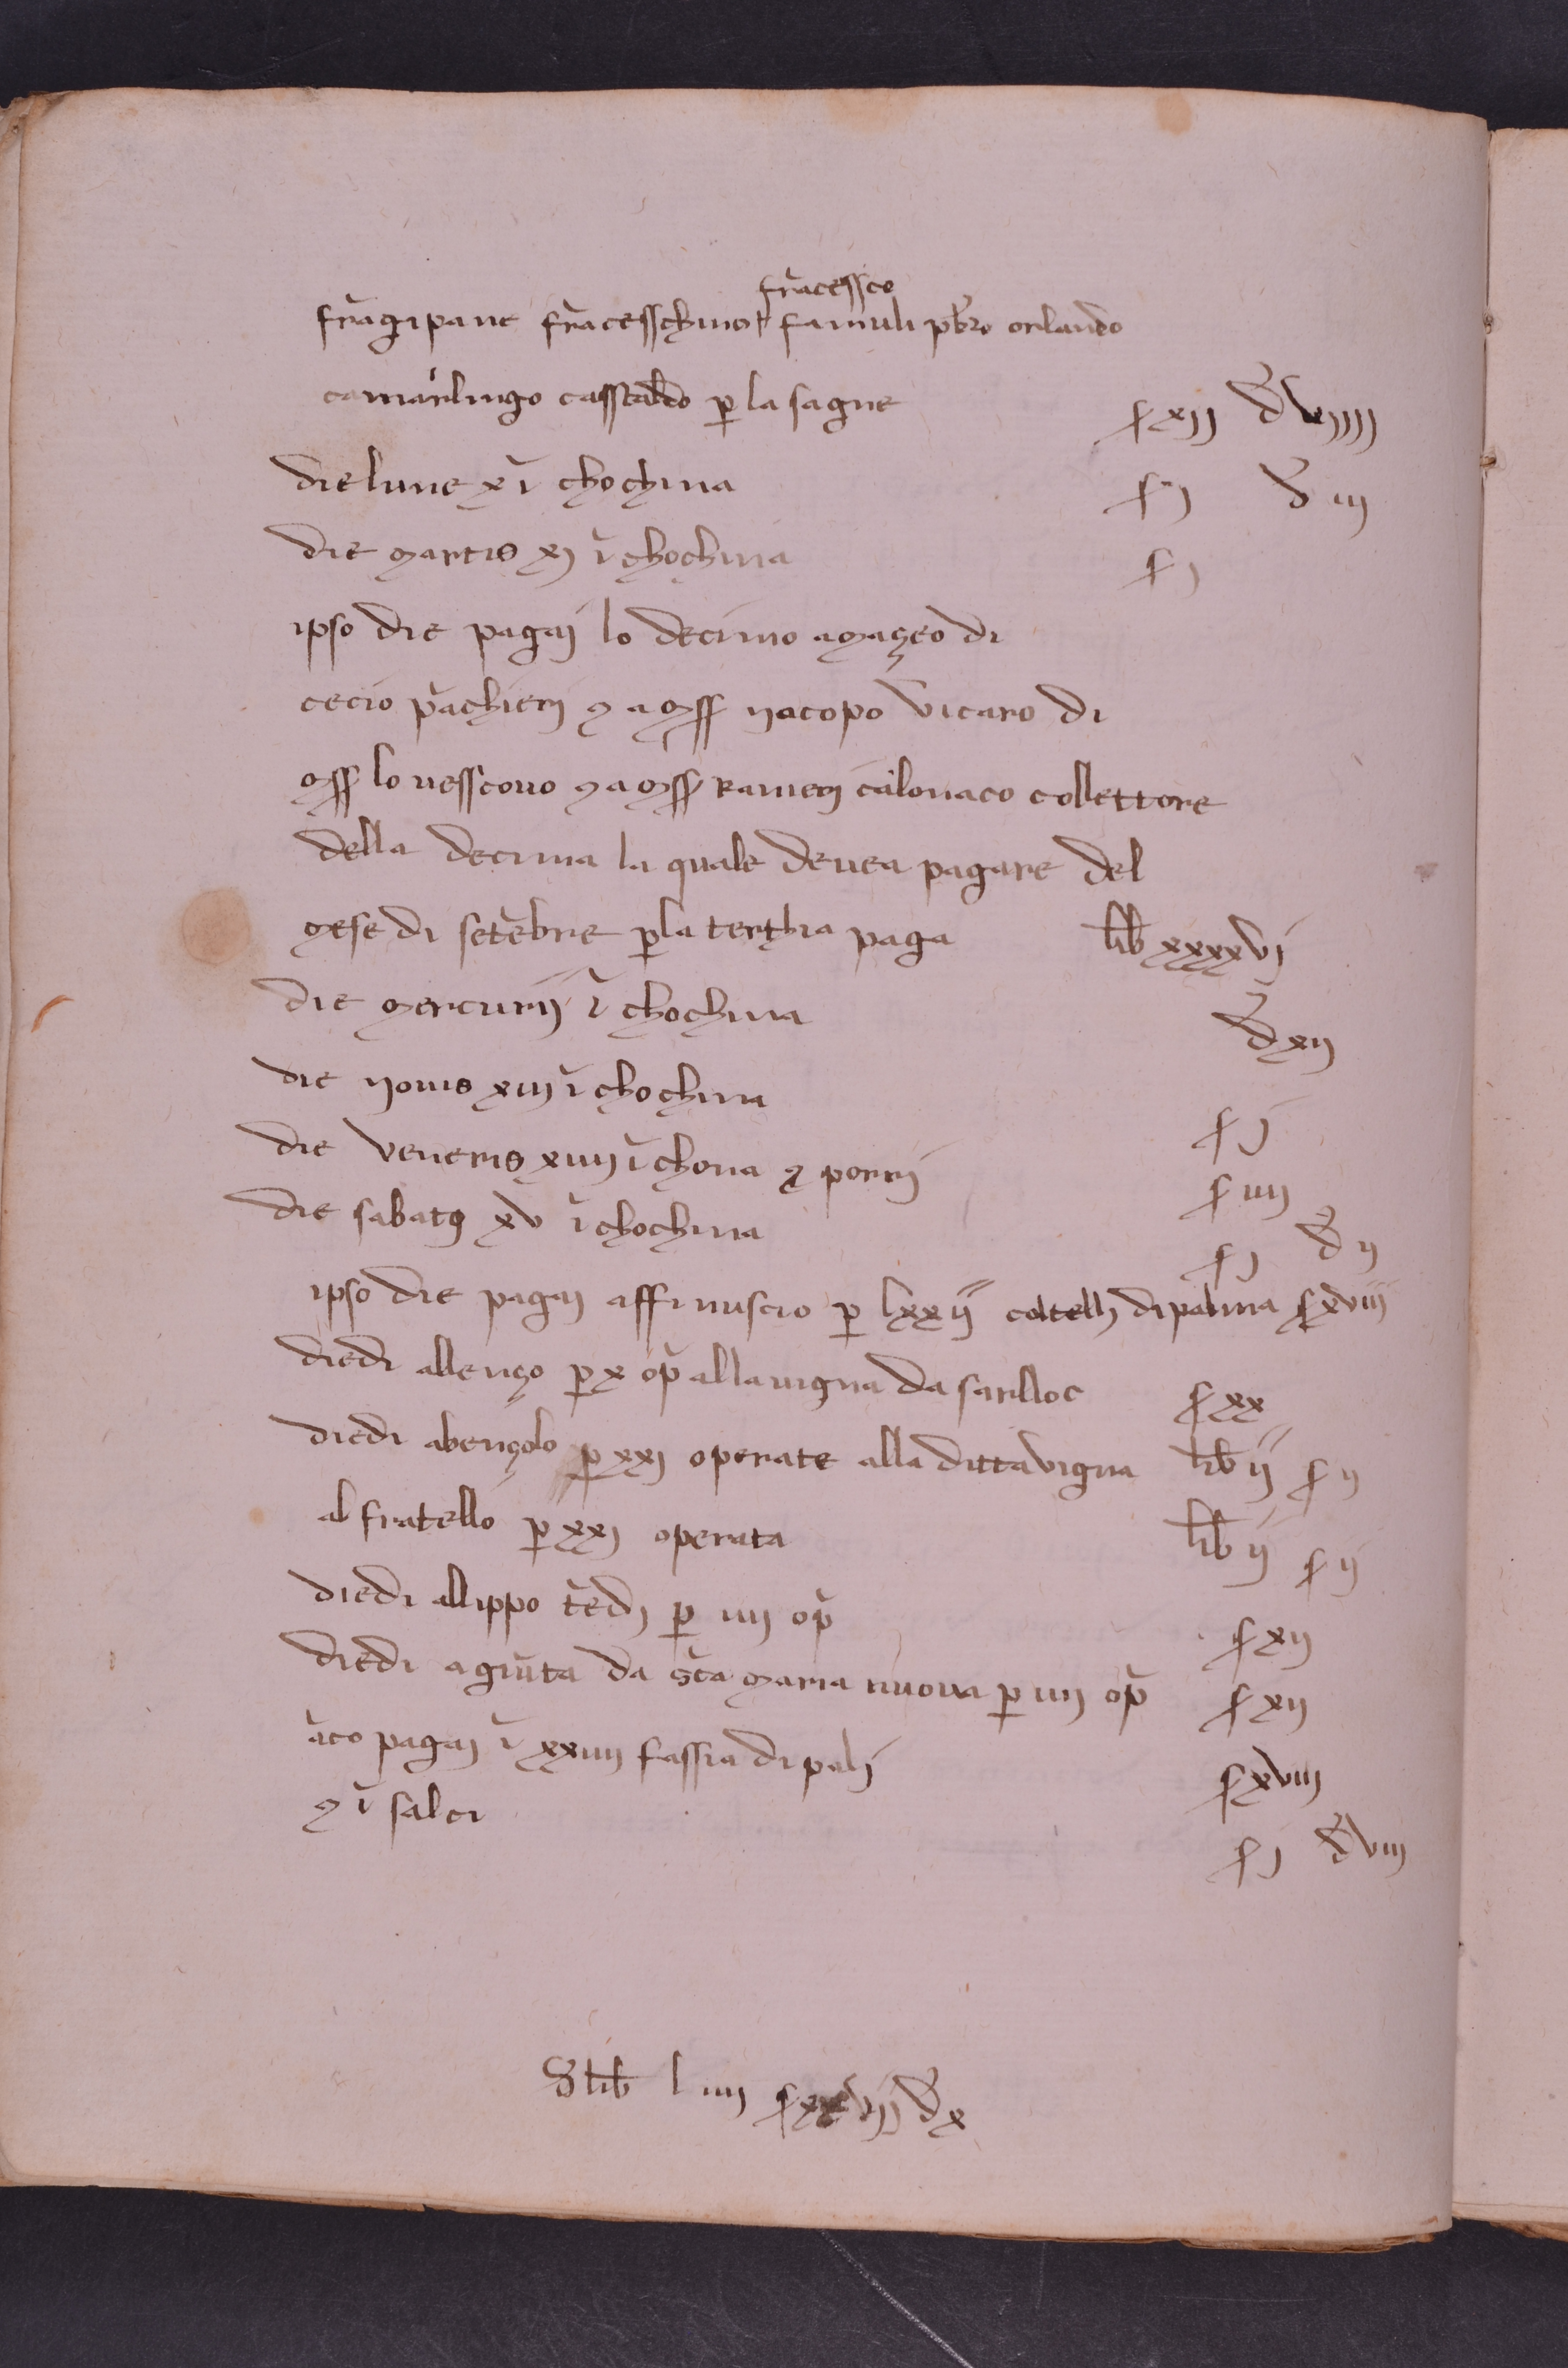 fra̅cessco
fra̅gipane fra̅cesschino famuli pb̅ro orlando
camarlingo casstaldo p̲ la sagne s xij d̅ viiij
die lune x i̅ chochina s j d̅ iij
die martis xj i̅ chochina s j
ipso die pagaj lo decimo a maçeo di
cecio pa̅chierj ⁊ a mss̅ iiacopo vicaro di
mss̅ lo vesscovo ⁊ a mss̅ Ranierj calonaco collettore
della decima la quale devea pagare del
mese di sete̅bre p̲ la terthia paga lib̅ xxxxvj
die mercurij i̅ chochina d̅ xij
die iiovis xiij i̅ chochina s j
die veneris xiiij i̅ chona ⁊ porrj s iiij
die sabatꝯ xv i̅ chochina s j d̅ ij
ipso die pagaj affinuscio p̲ lxxij coltellj di palma s xviij
diedi allenço p̲ x op̅ alla vigna da sarlloc s xx
diedi abençolo p̲ xxj operate alla ditta vigna lib̅ ij s ij
al fratello p̲ xxj operata lib̅ ij s ij
diedi allippo te̅dj p̲ iiij op̅ s xij
diedi a giu̅ta da sc̅a maria nuova p̲ iiij op̅ s xij
a̅co pagaj i̅ xxiiij fassia di palj s xviij
⁊ i̅ salci s j d̅ viij
S lib̅ l iiij d̅ x